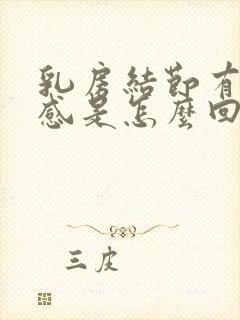 乳房結節有
感是怎麼回
三皮